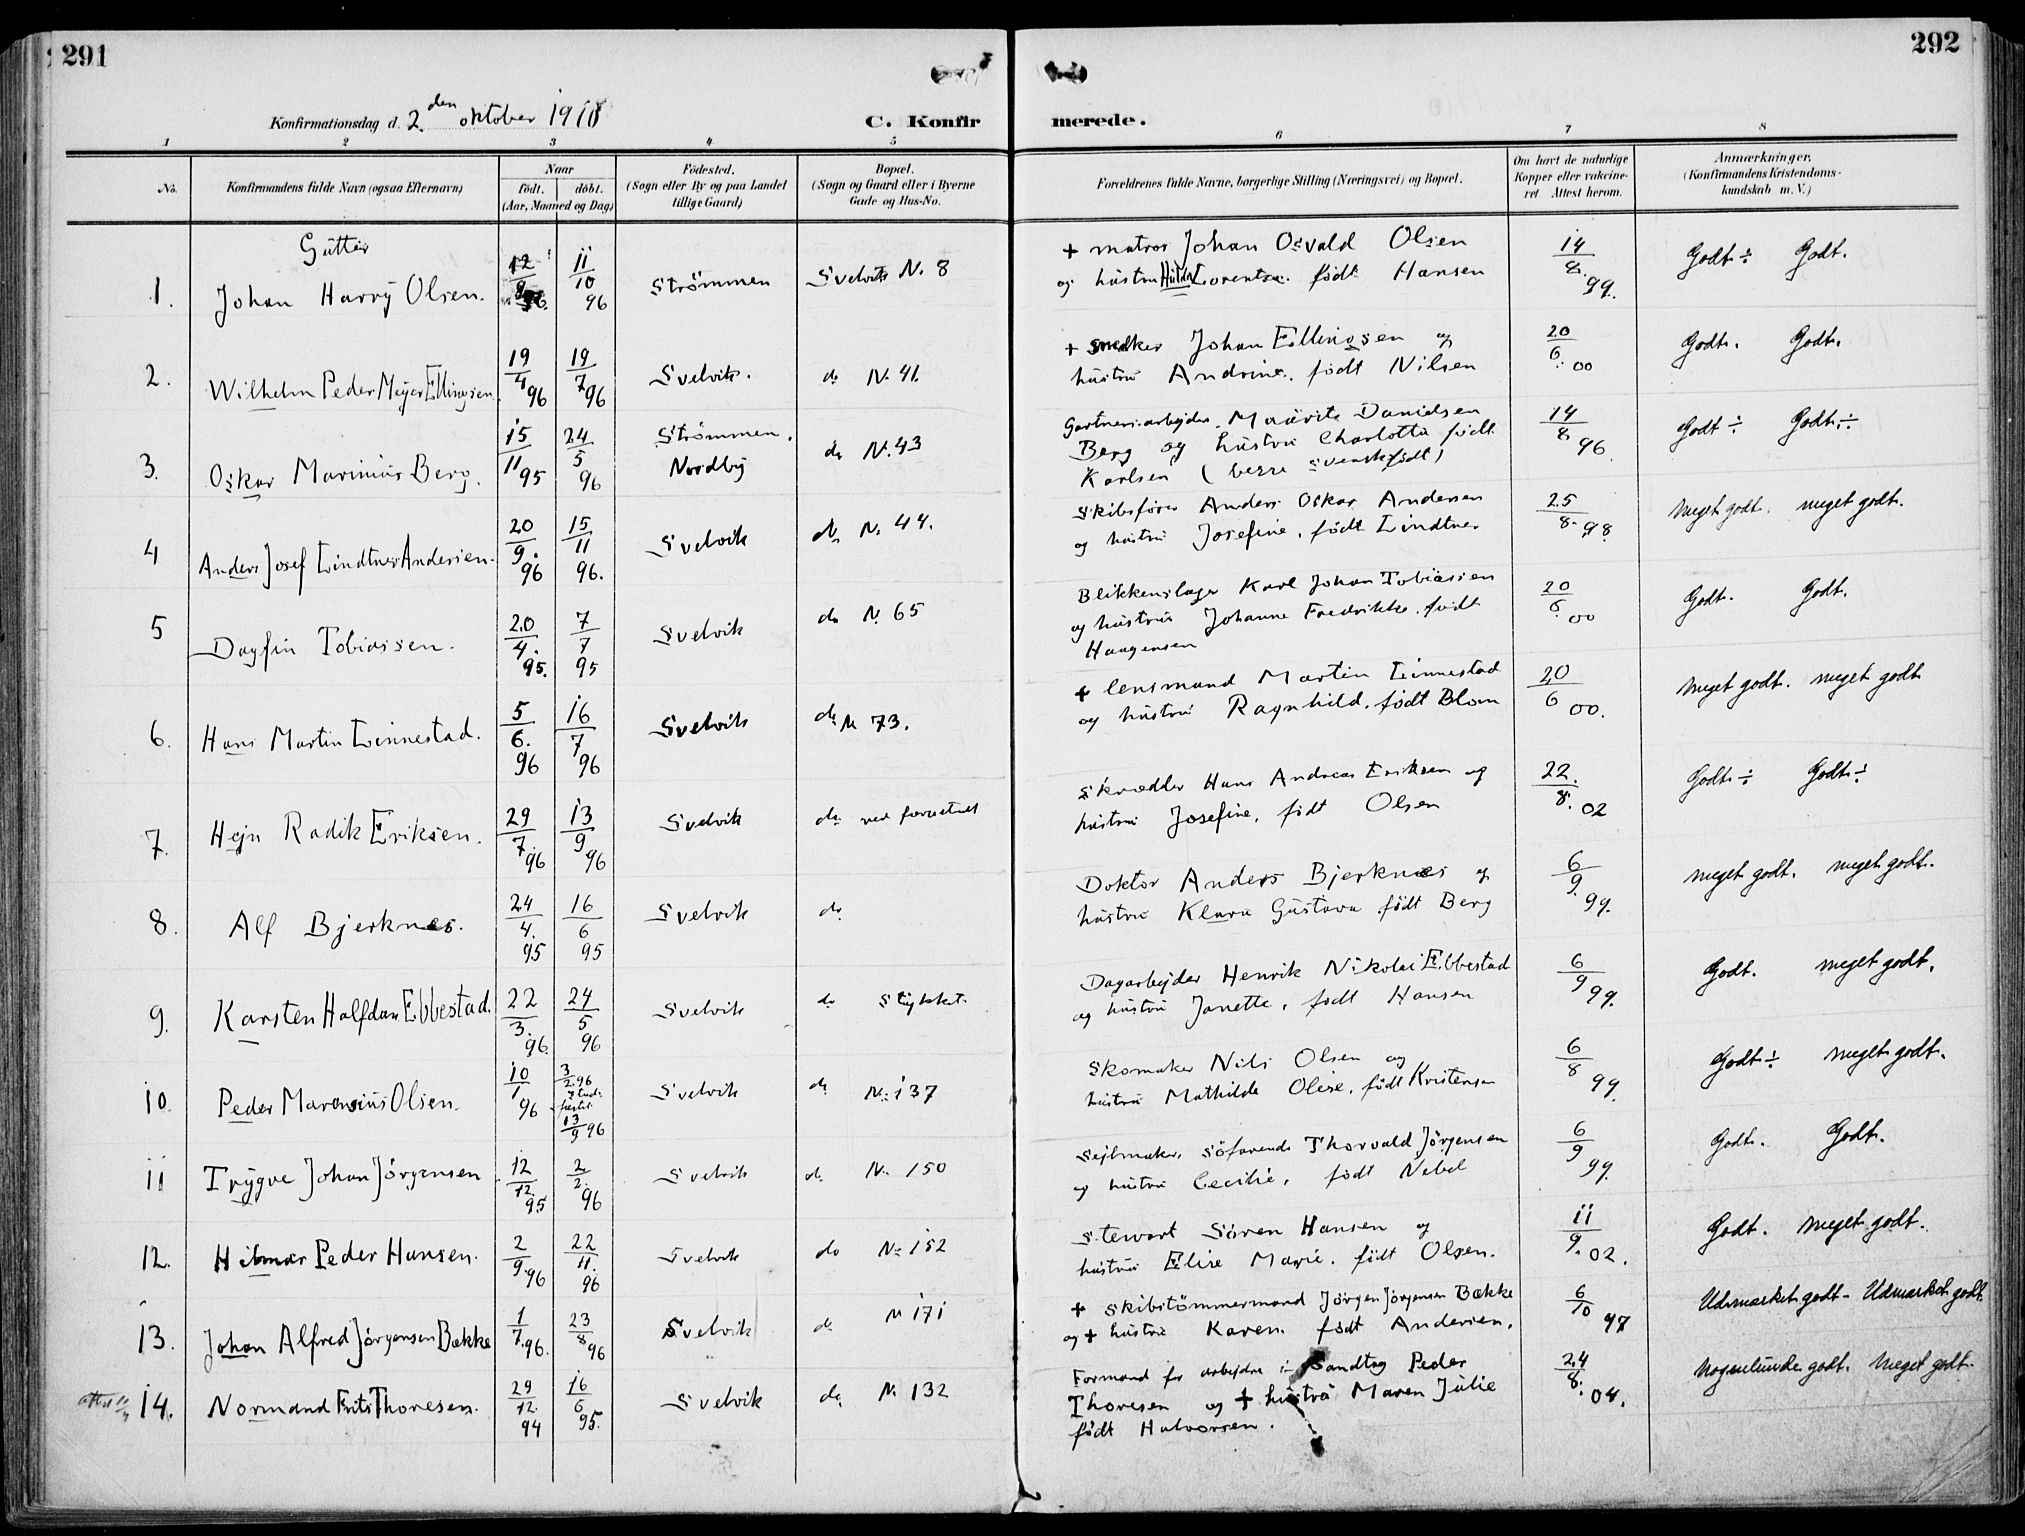 291
292
Konfirmationsdag d. 2. den oktober 1910
C. Konfirmerede.
1 2 3 4 5 6 7 8
No.
Konfirmandens fulde Navn (ogsaa Efternavn)
Naar
født. døbt.
(Aar, Maaned og Dag)
Fødested.
(Sogn eller By og paa Landet
tillige Gaard)
Bopæl.
(Sogn og Gaard eller i Byerne
Gade og Hus-No.
Forældrenes fulde Navne, borgerlige Stilling (Næringsvei) og Bopæl.
Om havt de naturlige
Kopper eller vakcine-
ret Attest herom.
Anmærkninger.
(Konfirmandens Kristendoms-
kundskab m. V.)
Gutter
1. Johan Harry Olsen. 12/8 96. 11/10 96 Strömmen Svelvik N. 8
+ matros Johan Osvald Olsen
og hustru Hulda Lorentse. født Hansen
14/8. 99. Godt ÷ Godt.
2. Wilhelm Peder Meyer Ellingsen 19/4 96 19/7 96 Svelvik. do N. 41.
+ snedker Johan Ellingsen og
hustru Andrine. født Nilsen
20/6. 00 Godt. Godt.
3. Oskar Marinius Berg. 15/11 95 24/5 96 Strömmen. Nordby do N. 43
Gartneri-arbejder Mauritz Danielsen
Berg og hustru Charlotta født
Karlsen ( begge svenskfødt)
14/8 96. Godt ÷ Godt. ÷
4 Anders Josef Lindtner Andersen. 20/9. 96 15/11 96. Svelvik do N. 44.
Skibsfører Anders Oskar Andersen
og hustru Josefine, født Lindtner
25/8. 98. Meget godt. meget godt.
5 Dagfin Tobiassen. 20/4. 95. 7/7 95 Svelvik do N. 65
Blikkenslager Karl Johan Tobiassen
og hustru Johanne Fredrikke. født
Haagensen
20/6 00 Godt. Godt.
6. Hans Martin Linnestad. 5/6. 96 16/7 96 Svelvik do N 73.
+ lensmand Martin Linnestad
og hustru Ragnhild. født Blom
20/6 00. Meget godt. meget godt
7. Hejn Radik Eriksen. 29/7. 96 13/9 96 Svelvik do ved
Skrædder Hans Andreas Eriksen og
hustru Josefine, født Olsen
22./8. 02 Godt ÷ Godt ÷
8. Alf Bjerknes. 24/4. 95 16/6 95 Svelvik do
Doktor Anders Bjerknes og
hustru Klara Gustava født Berg
6/9. 99. meget godt. meget godt.
9. Karsten Halfdan Ebbestad. 22/3. 96. 24/5 96 Svelvik do Stykket.
Dagarbejder Henrik Nikolai Ebbestad
og hustru Janette, født Hansen
6/9 99. Godt. meget godt.
10. Peder Marensius Olsen. 10/1 96 3/2 96 13/9 96 Svelvik do N. 137
Skomaker Nils Olsen og
hustru Mathilde Olise, født Kristensen
6/8 99. Godt ÷ meget godt.
11 Trygve Johan Jörgensen 12/12. 95 2/2. 96 Svelvik do. N. 150
Sejlmaker, söfarende Thorvald Jörgensen
og hustru Cecilie, født Nebel
6/9 99. Godt. Godt.
12. Hilmar Peder Hansen. 2/9. 96 22/11. 96 Svelvik do N. 152
Stewart Sören Hansen og
hustru Elise Marie. født Olsen.
11/9. 02. Godt. meget godt.
13. Johan Alfred Jörgensen Bække 1/7. 96. 23/8 96 Svelvik do N 171
+ Skibstömmermand Jörgen Jörgensen Bække
og + hustru Karen født Andersen.
6/10 97 Udmærket godt - Udmærket godt.
14. Normand Frits Thoresen. 29/12. 94 16/6 95. Svelvik do N. 132
Formand for arbejdre i Sandtag Peder
Thoresen og + hustru Maren Julie
født Halvorsen.
24/8. 04. Nogenlunde godt. Meget godt.